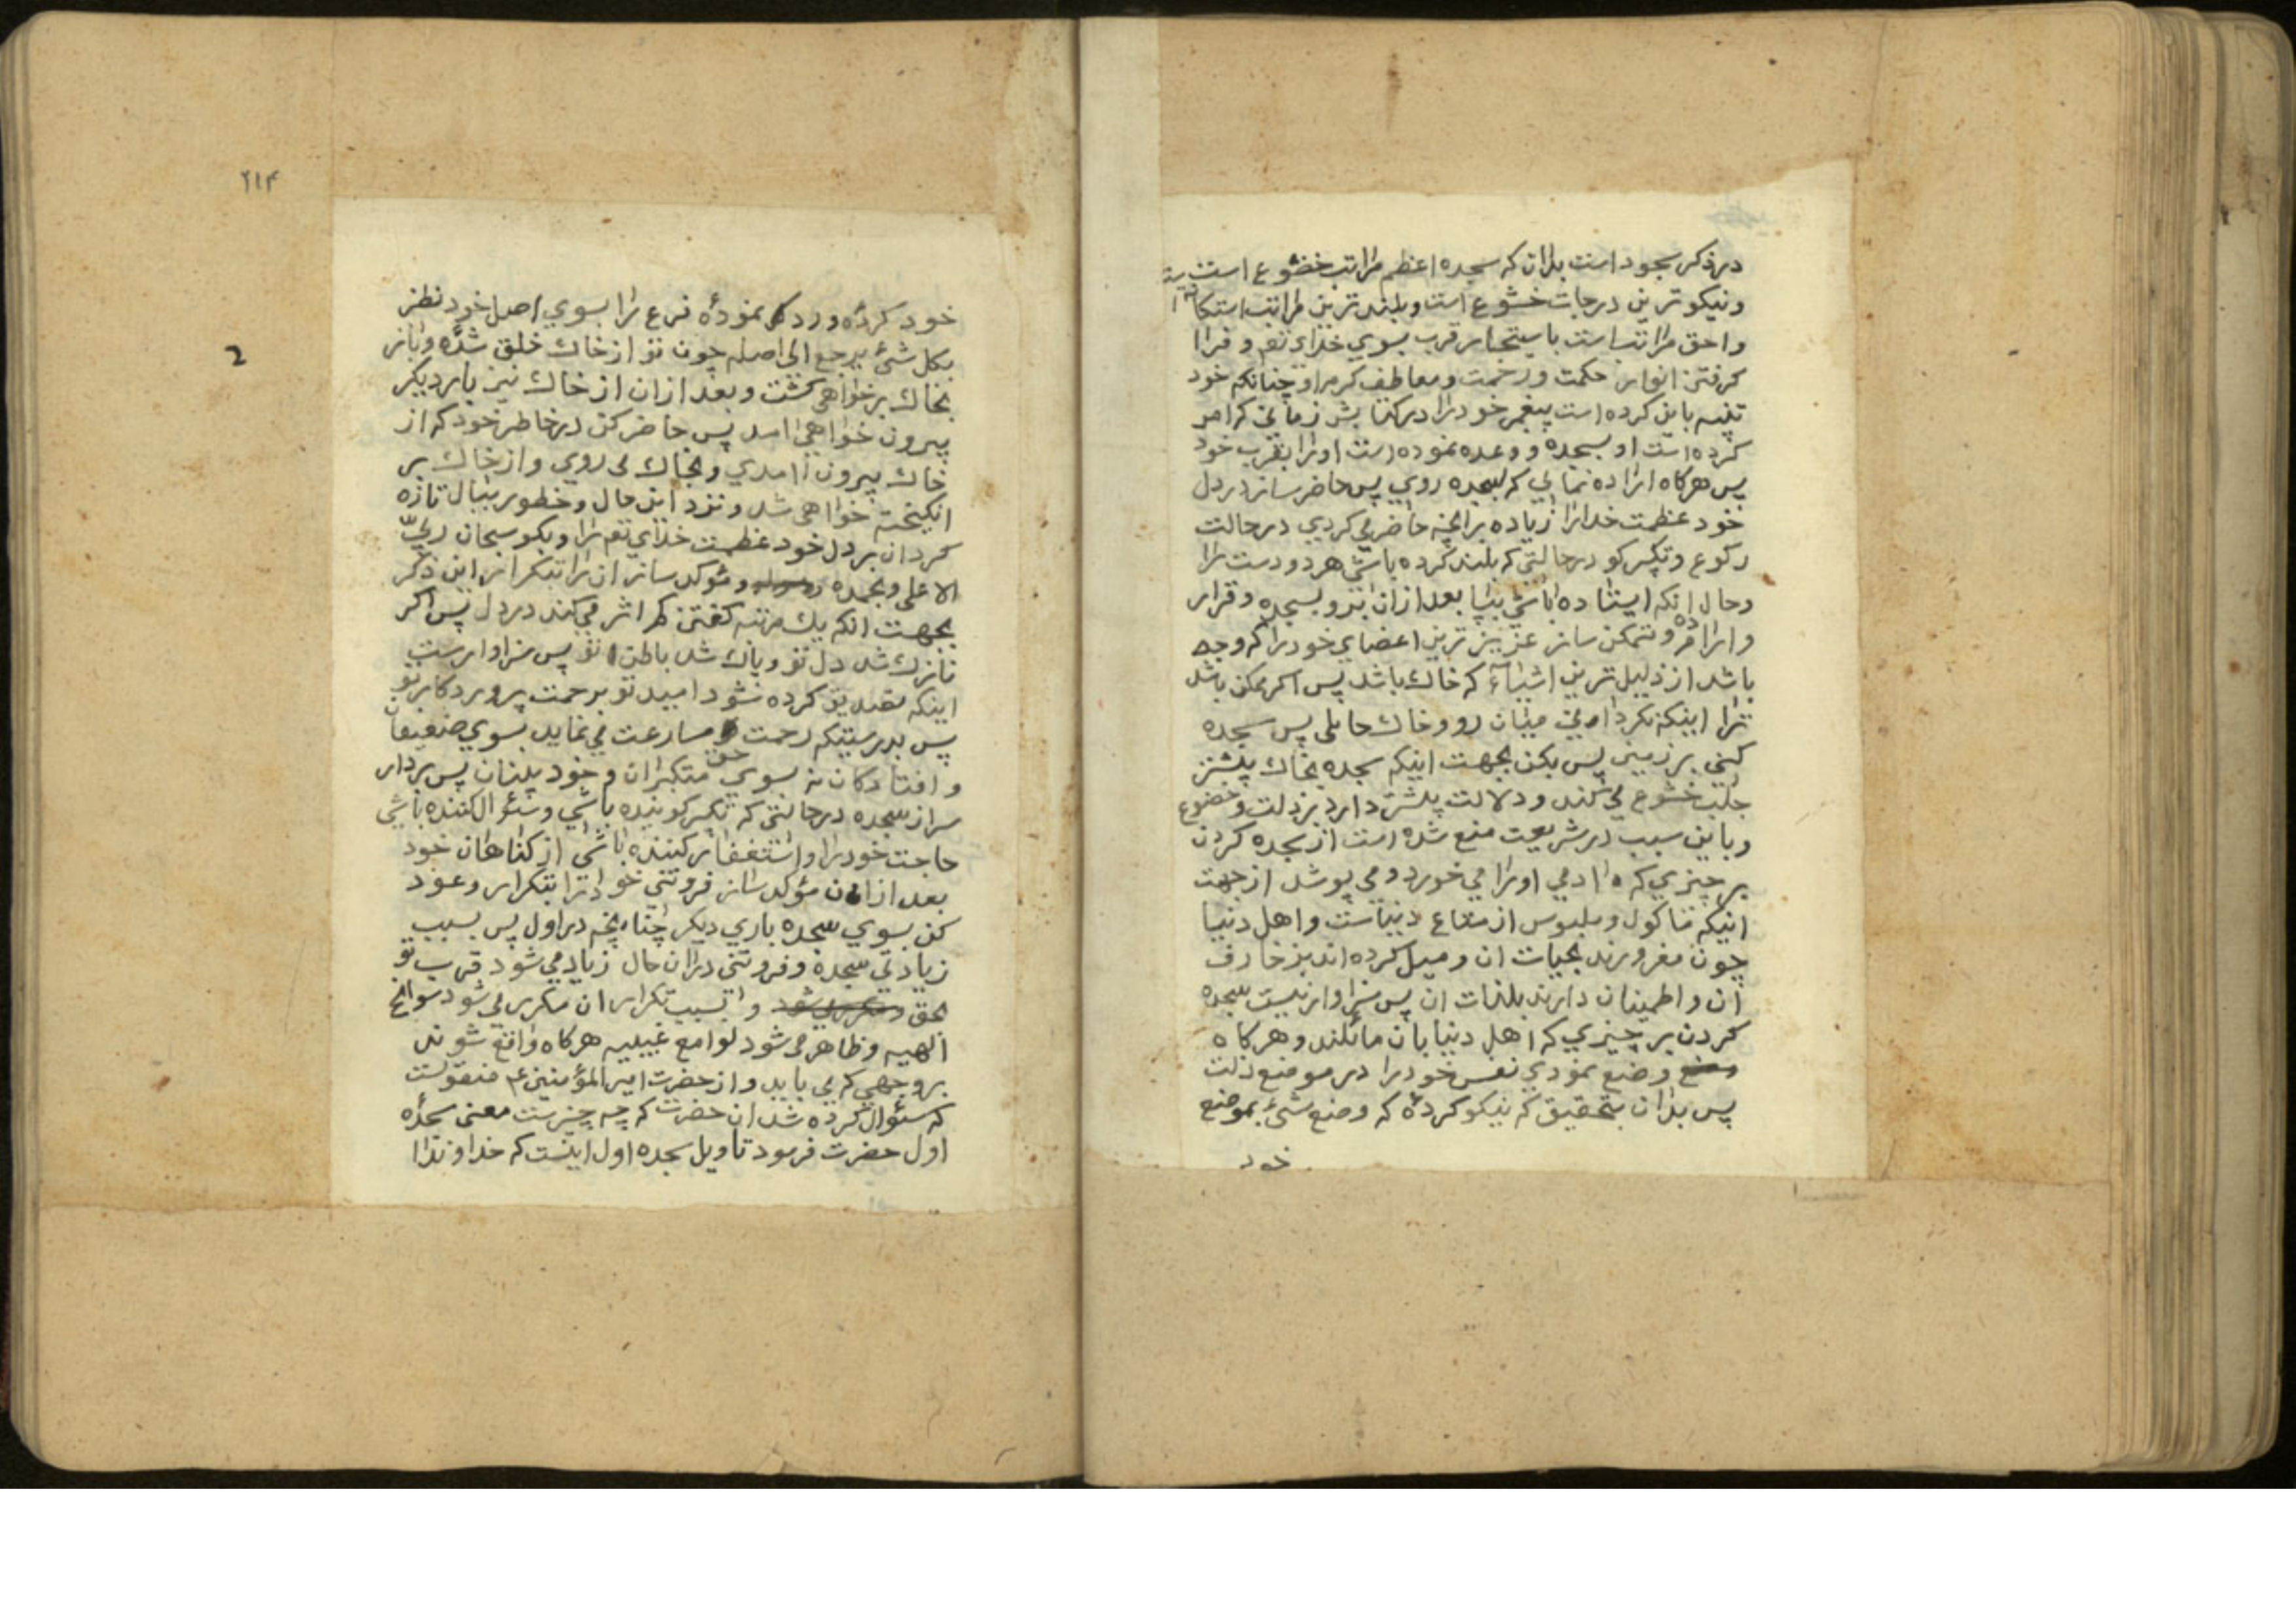 در ذکر سجود است بدان که سجده اعظم مراتب خضوع است
ونیکو ترین درجات خشوع است وبلند ترین مراتب استکانت
واحق مراتب است باستیجاب قرب بسوي خداي تعم و فرا
کرفتن انوار حکمت ورحمت ومعاطف کرم او چنانکه خود
تنبیه باین کرده است پیغمبر خود را در کتابش زمانی که امر
کرده است او بسجده و وعده نموده است اورا بقرب خود
پس هرکاه اراده نمائي که بسجده روي پس حاضر ساز در دل
خود عظمت خدارا زیاده بر انچه حاضر می کردي در حالت
رکوع وتکبیر کو در حالتی که بلند کرده باشی هر دو دست را
وحال انکه ایستاده باشی بپا بعد ازان برو بسجده وقرار
واراده و متمکن ساز عزیز ترین اعضای خود را که وجه
باشد از ذلیل ترین اشیاء که خاك باشد پس اکر ممکن باشد
ترا اینکه نکردانی میان رو وخاك حایلی پس سجده
کنی بر زمین پس بکن بجهت اینکه سجده بخاك بیشتر
جلب خشوع می کند و دلالت بیشتر دارد بر ذلت وخضوع
وباین سبب در شریعت منع شده است از سجده کردن
بر چیزي که ادمي اورا مي خورد و می پوشد از جهت
انیکه ماکول وملبوس از متاع دنیاست واهل دنیا
چون مغرورند بحیات ان ومیل کرده اند بزخارف
ان واطمینان دارند بلذات ان پس سزاوار نیست سجده
کردن بر چیزي که اهل دنیا بان مائلند وهرکاه
وضع نمودي نفس خود را در موضع ذلت
پس بدان بتحقیق که نیکو کردهٔ که وضع شئ بموضع
خود
٢١۴
2
خود کردهٔ ورد نمودهٔ فرع را بسوي اصل خود نظر
بکل شئ یرجع الی اصله چون تو از خاك خلق شدهٔ وباز
بخاك بر خواهی کشت وبعد ازان از خاك نیز بار دیکر
بیرون خواهی امد پس حاضر کن در خاطر خود که از
خاك بیرون امدي وبخاك می روي واز خاك بر
انکیخته خواهی شد ونزد این حال وخطور ببال تازه
کردان بر دل خود عظمت خداي تعم را وبکو سبحان ربّي
الاعلی وبحمده ومؤکد ساز ان را بتکرار این ذکر
بجهت انکه یك مرتبه کفتن کم اثر می کند در دل پس اکر
نازك شد دل تو وپاك شد باطن تو پس سزاوارست
اینکه تصدیق کرده شود امید تو برحمت پروردکار تو
پس بدرستیکه رحمت حق مسارعت می نماید بسوي ضعیفان
وافتادکان نه بسوي متکبران وخود بینان پس بردار
سر از سجده در حالتی که تکبیر کوینده باشی وسئوال کننده باشی
حاجت خود را واستغفار کننده باشی از کناهان خود
بعد ازان مؤکد ساز فروتنی خود را بتکرار وعود
کن بسوي سجده باري دیکر چنانچه در اول پس بسبب
زیادتی سجده وفروتنی دران حال زیاد می شود قرب تو
بحق وبسبب تکرار ان مکرر می شود سوانح
الهیه وظاهر می شود لوامع غیبیه هرکاه واقع شوند
بروجهي که می باید واز حضرت امیر المؤمنین ع منقولست
که سئوال کرده شد ان حضرت که چه چیزست معنی سجدهٔ
اول حضرت فرمود تاویل سجده اول اینست که خداوندا